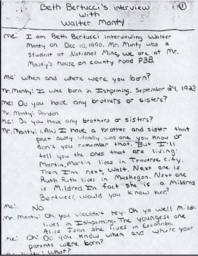 Beth Bertucci's interview
with
Walter Manty
me: I am Beth Bertucci interviewing Walter
Manty on Dec 10, 1990. Mr. Manty was a
Student at National Mine, we are at Mr.
Manty's house on county road PBB.
me: when and where were you born?
Mr. Manty: I was born in Ishpeming, September 24, 1923
me: Do you have any brothers or sisters?
Mr. Manty: Pardon
me: Do you have any brothers or sisters?
Mr. Manty: Ah, I have a brother and sister that
past away already was one you know or
don't you remember that. But I'll
tell you the ones that are living:
Martin, Martin lives in Traverse city.
Then I'm next, Walt. Next one is
Ruth Ruth lives in Muskegon. Next one
is Mildred In fact she is a Mildred
Bertucci, would you know her?
me: NO
Mr. Manty: Oh you wouldn't. Oh ya well Mildred
lives in Ishpeming. The youngest one
Alice Ann she lives in
me: Oh! Do you know when and where your
parents were born?
Mr. Manty: What?